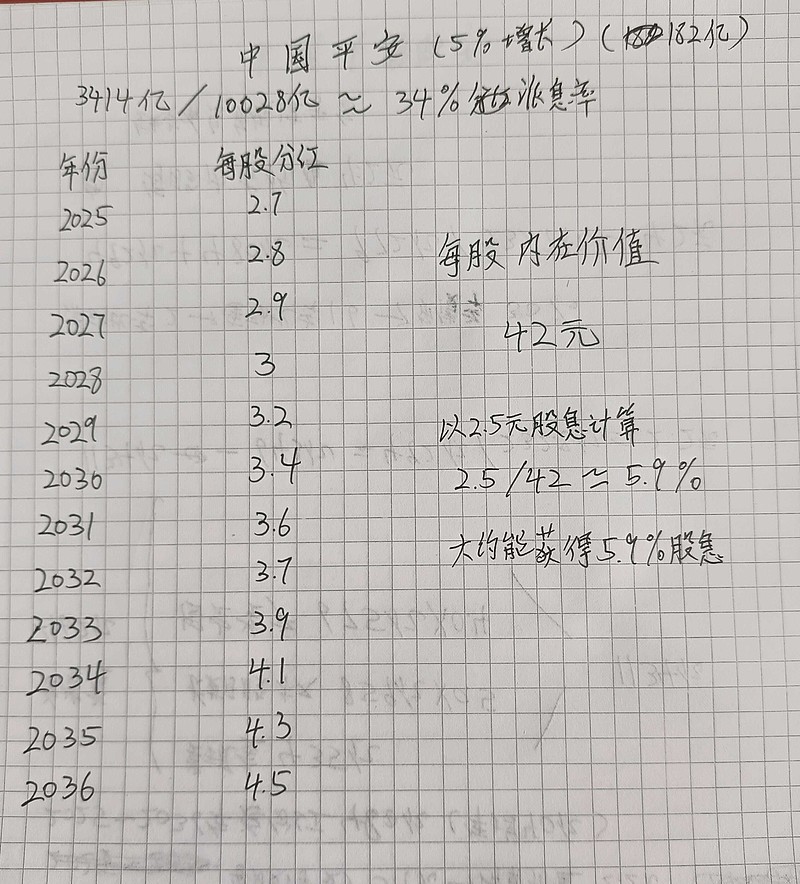 中国平安（5%增长）（182亿）
3414亿/10028亿≈34%派息率
年份 每股分红
2025 2.7
2026 2.8
2027 2.9
2028 3
2029 3.2
2030 3.4
2031 3.6
2032 3.7
2033 3.9
2034 4.1
2035 4.3
2036 4.5
每股内在价值
42元
以2.5元股息计算
2.5/42≈5.9%
大约能获得5.9%股息